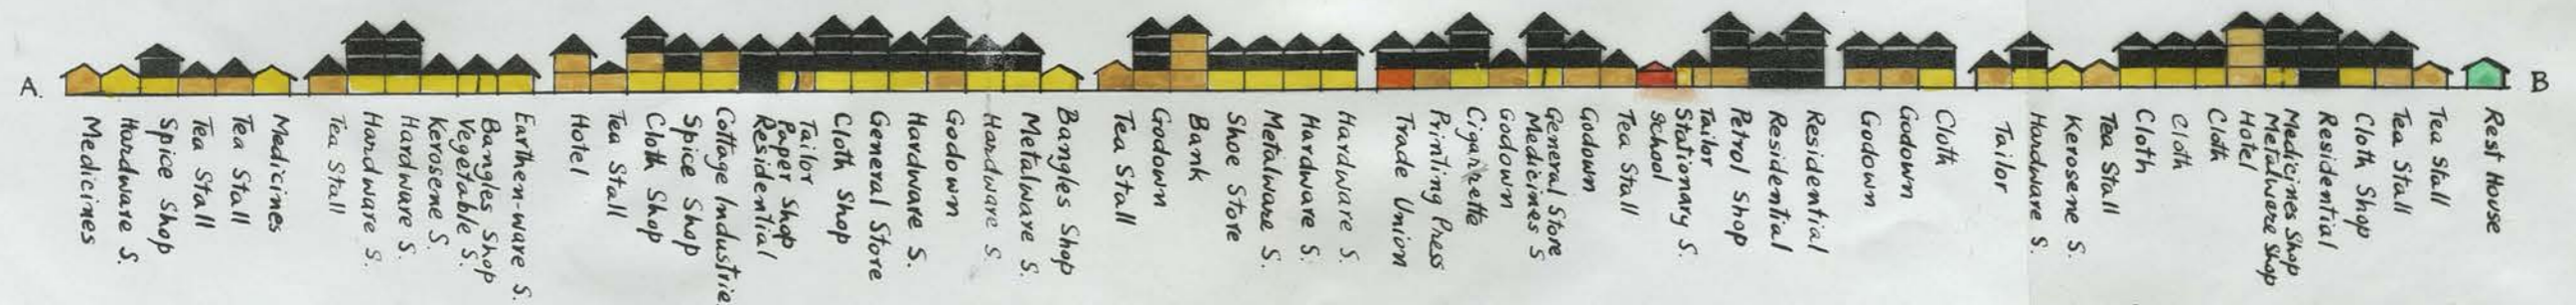 A.
Medicines
Hardware S.
Spice Shop
Tea Stall
Tea Stall
Medicines
Tea Stall
Hardware S.
Hardware S.
Kerosene S.
Vegetable S.
Bangles Shop
Earthen-ware S.
Hotel
Tea Stall
Cloth Shop
Spice Shop
Cottage Industrie
Residential
Paper Shop
Tailor
Cloth Shop
General Store
Hardware S.
Godown
Hardware S
Metalware S.
Bangles Shop
Tea Stall
Godown
Bank
Shoe Store
Metalware S.
Hardware S.
Hardware S.
Trade Union
Printing Press
Cigarette
Godown
Medicines S
General Store
Godown
Tea Stall
School
Stationary S.
Tailor
Petrol Shop
Residential
Residential
Godown
Godown
Cloth
Tailor
Hardware S.
Kerosene S.
Tea Stall
Cloth
Cloth
Cloth
Hotel
Metalware Shop
Medicines Shop
Residential
Cloth Shop
Tea Stall
Tea Stall
Rest House
B